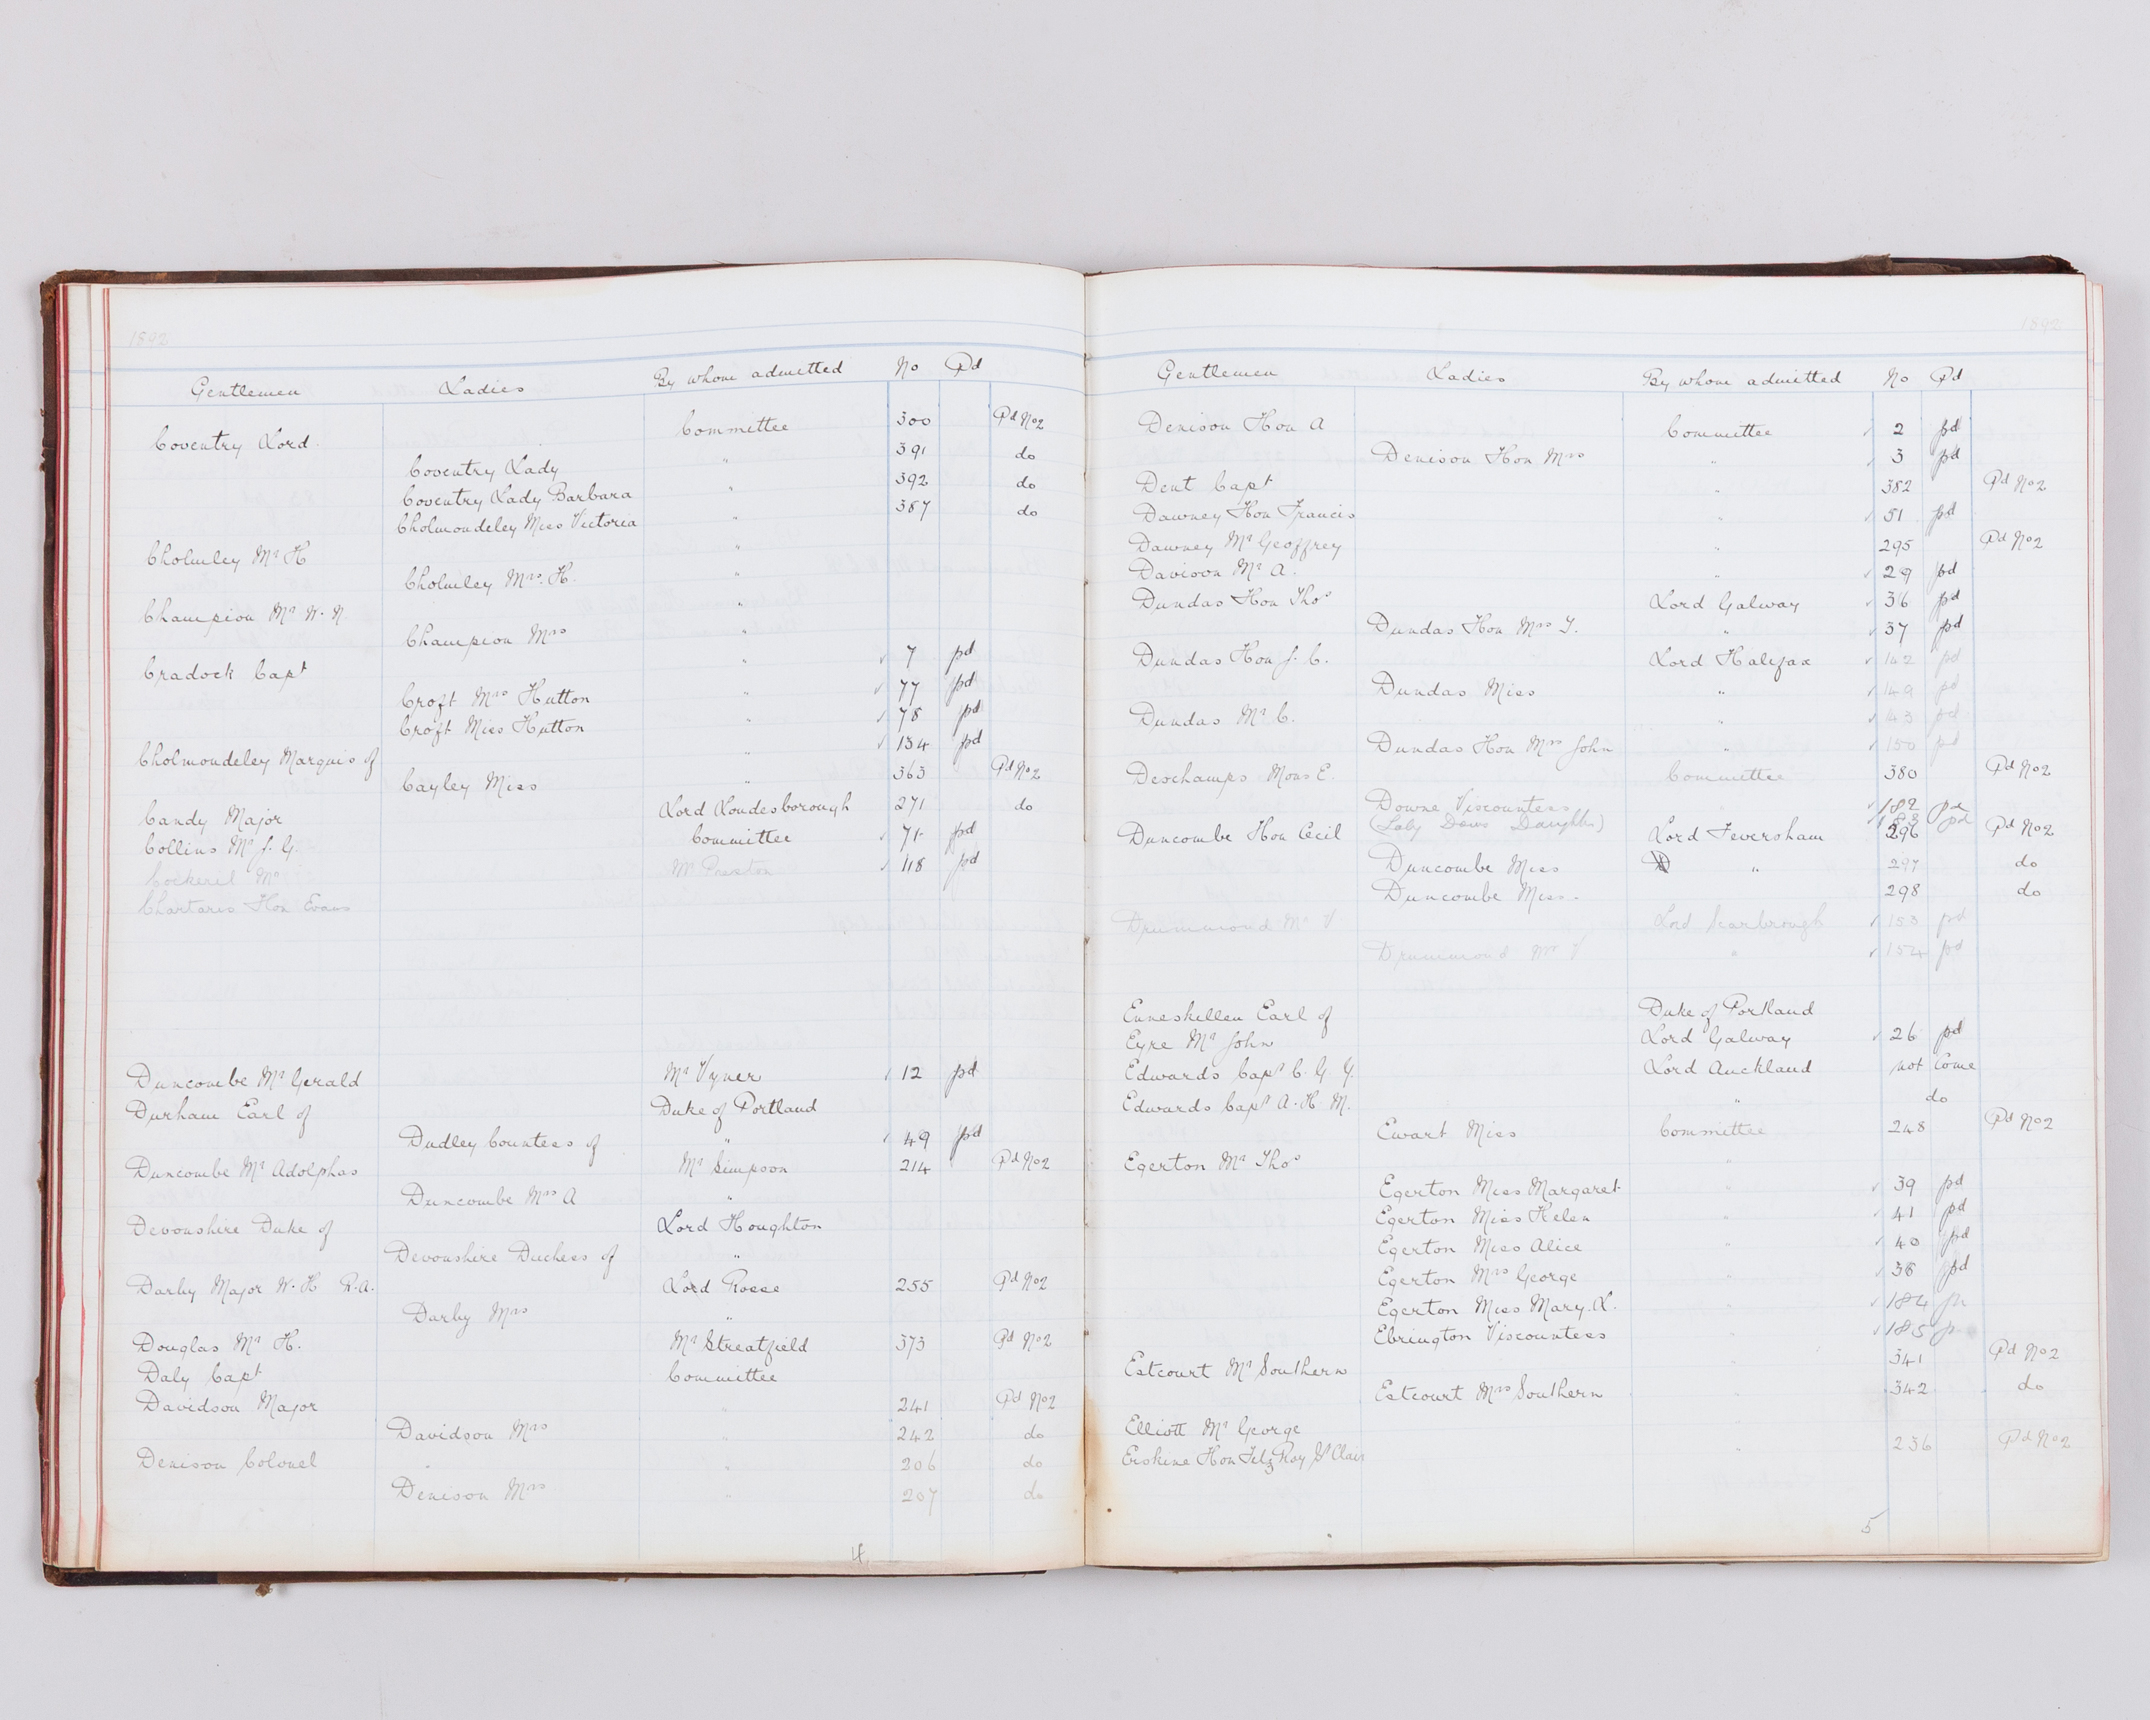 1892
Gentlemen Ladies By whom admitted No Pd
Coventry Lord. Committee 300 Pd No2
Coventry Lady " 391 do
Coventry Lady Barbara " 392 do
Cholmondeley Miss Victoria " 387 do
Cholmley Mr H "
Cholmley Mrs. H. "
Champion Mr W. N "
Champion Mrs "
Cradock Capt " ✓ 7 pd
Croft Mrs Hutton " ✓ 77 pd
Croft Miss Hutton " ✓ 78 pd
Cholmondeley Marquis of " ✓ 134 pd
Cayley Miss " 363 Pd No2
Candy Major Lord Londesborough 271 do
Collins Mr J. G. Committee ✓ 71 pd
Cockeril Mr Mr Preston ✓ 118 pd
Chartaris Hon Evans
Duncombe Mr Gerald Mr Vyner ✓ 12 pd
Durham Earl of Duke of Portland
Dudley Countess of " ✓ 49 pd
Duncombe Mr Adolphas Mr Simpson 214 Pd No2
Duncombe Mrs A "
Devonshire Duke of Lord Houghton
Devonshire Duchess of "
Darby Major W. H R.A. Lord Rosse 255 Pd No2
Darby Mrs "
Douglas Mr H. Mr Streatfield 373 Pd No2
Daly Capt Committee
Davidson Major " 241 Pd No2
Davidson Mrs " 242 do
Denison Colonel " " 206 do
Denison Mrs " 207 do
4
1892
Gentlemen Ladies By whom admitted No Pd
Denison Hon A Committee ✓ 2 pd
Denison Hon Mrs " ✓ 3 pd
Dent Capt " 382 Pd No2
Dawney Hon Francis " ✓ 51 pd
Dawney Mr Geoffrey " 295 Pd No2
Davison Mr A. " ✓ 29 pd
Dundas Hon Thos Lord Galway ✓ 36 pd
Dundas Hon Mrs T. " ✓ 37 pd
Dundas Hon J. C. Lord Halifax ✓ 142 pd
Dundas Miss " ✓ 149 pd
Dundas Mr C. " ✓ 43 pd
Dundas Hon Mrs John " ✓ 150 pd
Deschamps Mons E. Committee 380 Pd No2
Downe Viscountess ✓ 182 pd
(Lady Downs Daughter) ✓ 183 pd
Duncombe Hon Cecil Lord Feversham 296 Pd No2
Duncombe Miss " 297 do
Duncombe Miss. 298 do
Drummond Mr V Lord Scarbrough ✓ 153 pd
Drummond Mrs V " ✓ 154 pd
Enneskillen Earl of Duke of Portland
Eyre Mr John Lord Galway ✓ 26 pd
Edwards Capt C. G. G. Lord Auckland not Come
Edwards Capt A. H. M. " do
Ewart Miss Committee 248 Pd No2
Egerton Mr Thos "
Egerton Miss Margaret " ✓ 39 pd
Egerton Miss Helen " ✓ 41 pd
Egerton Miss Alice " ✓ 40 pd
Egerton Mrs George " ✓ 38 pd
Egerton Miss Mary. L. " ✓ 184
Ebrington Viscountess " ✓ 185 p
Estcourt Mr Southern " 341 Pd No2
Estcourt Mrs Southern " 342 do
Elliott Mr George "
Erskine Hon Fitz Roy St Clair " 236 Pd No2
5